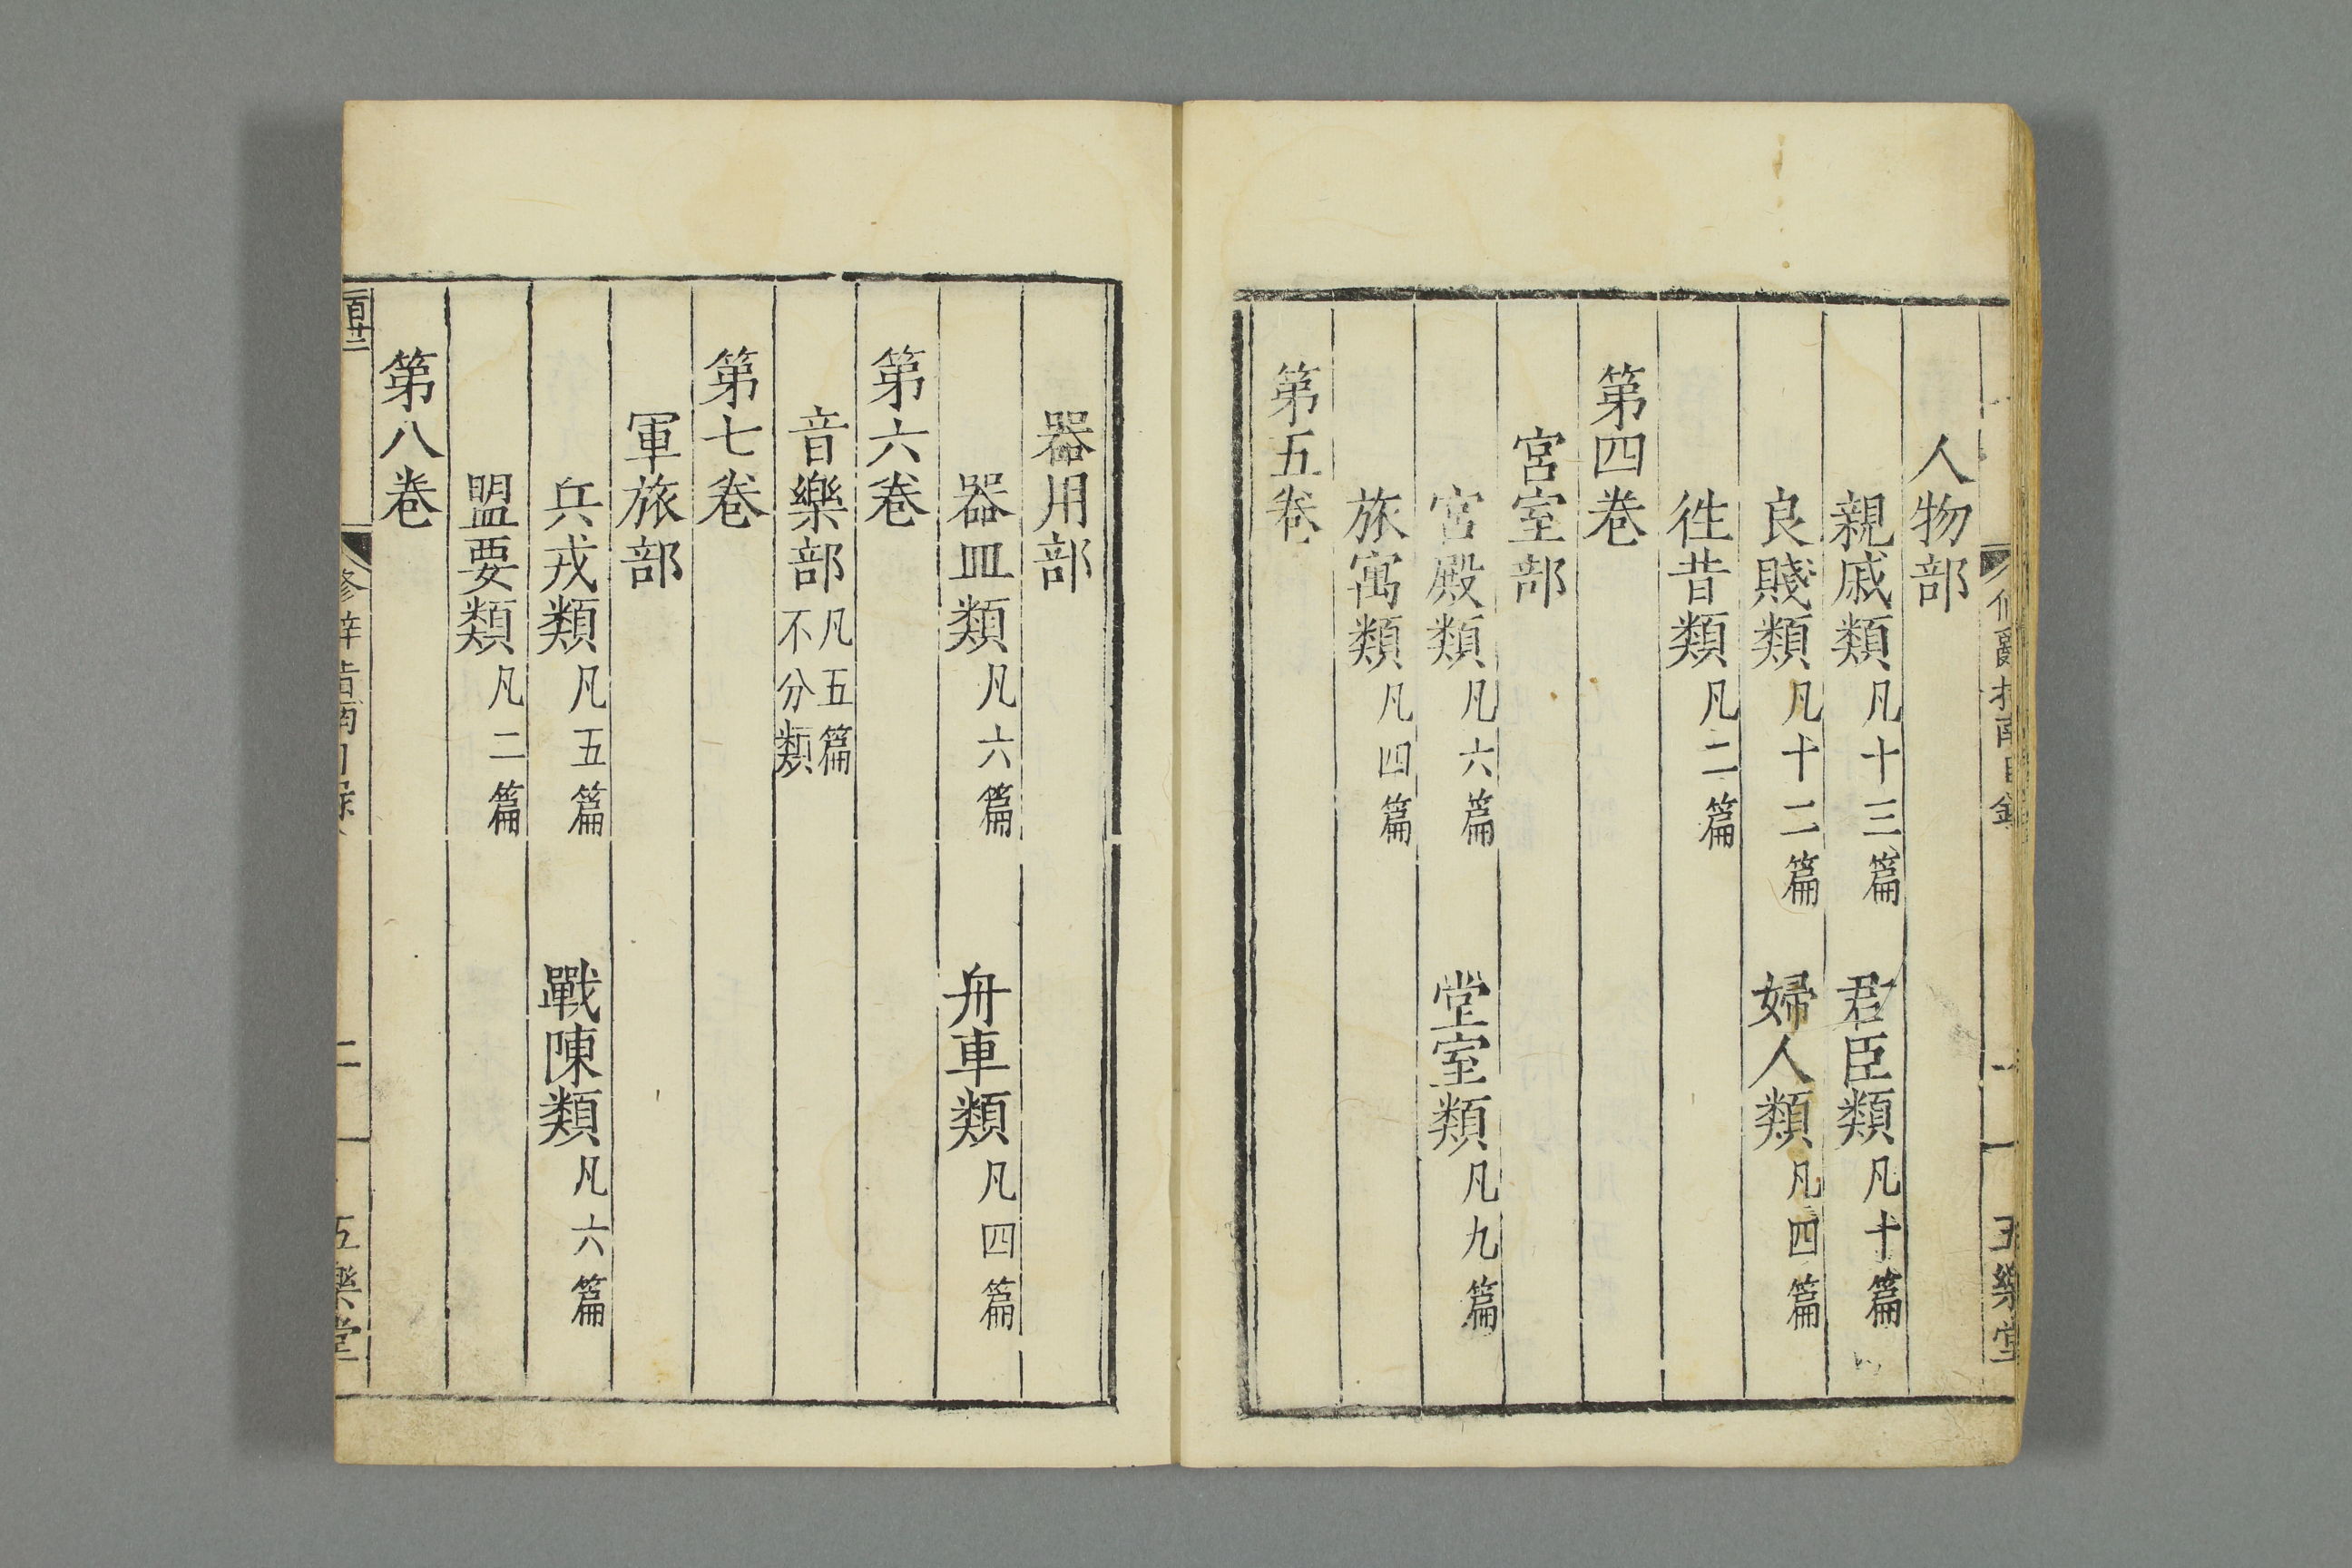 人物部
親戚類凡十三篇　君臣類凡十篇
良賤類凡十二篇　婦人類凡四篇
徃昔類凡二篇
第四卷
宮室部
宮殿類凡六篇　堂室類凡九篇
旅寓類凡四篇
第五卷
器用部
器皿類凡六篇　舟車類凡四篇
第六卷
音樂部凡五篇不分類
第七卷
軍旅部
兵戎類凡五篇　戰陳類凡六篇
盟要類凡二篇
第八卷
修辭指南目錄　二　五樂堂